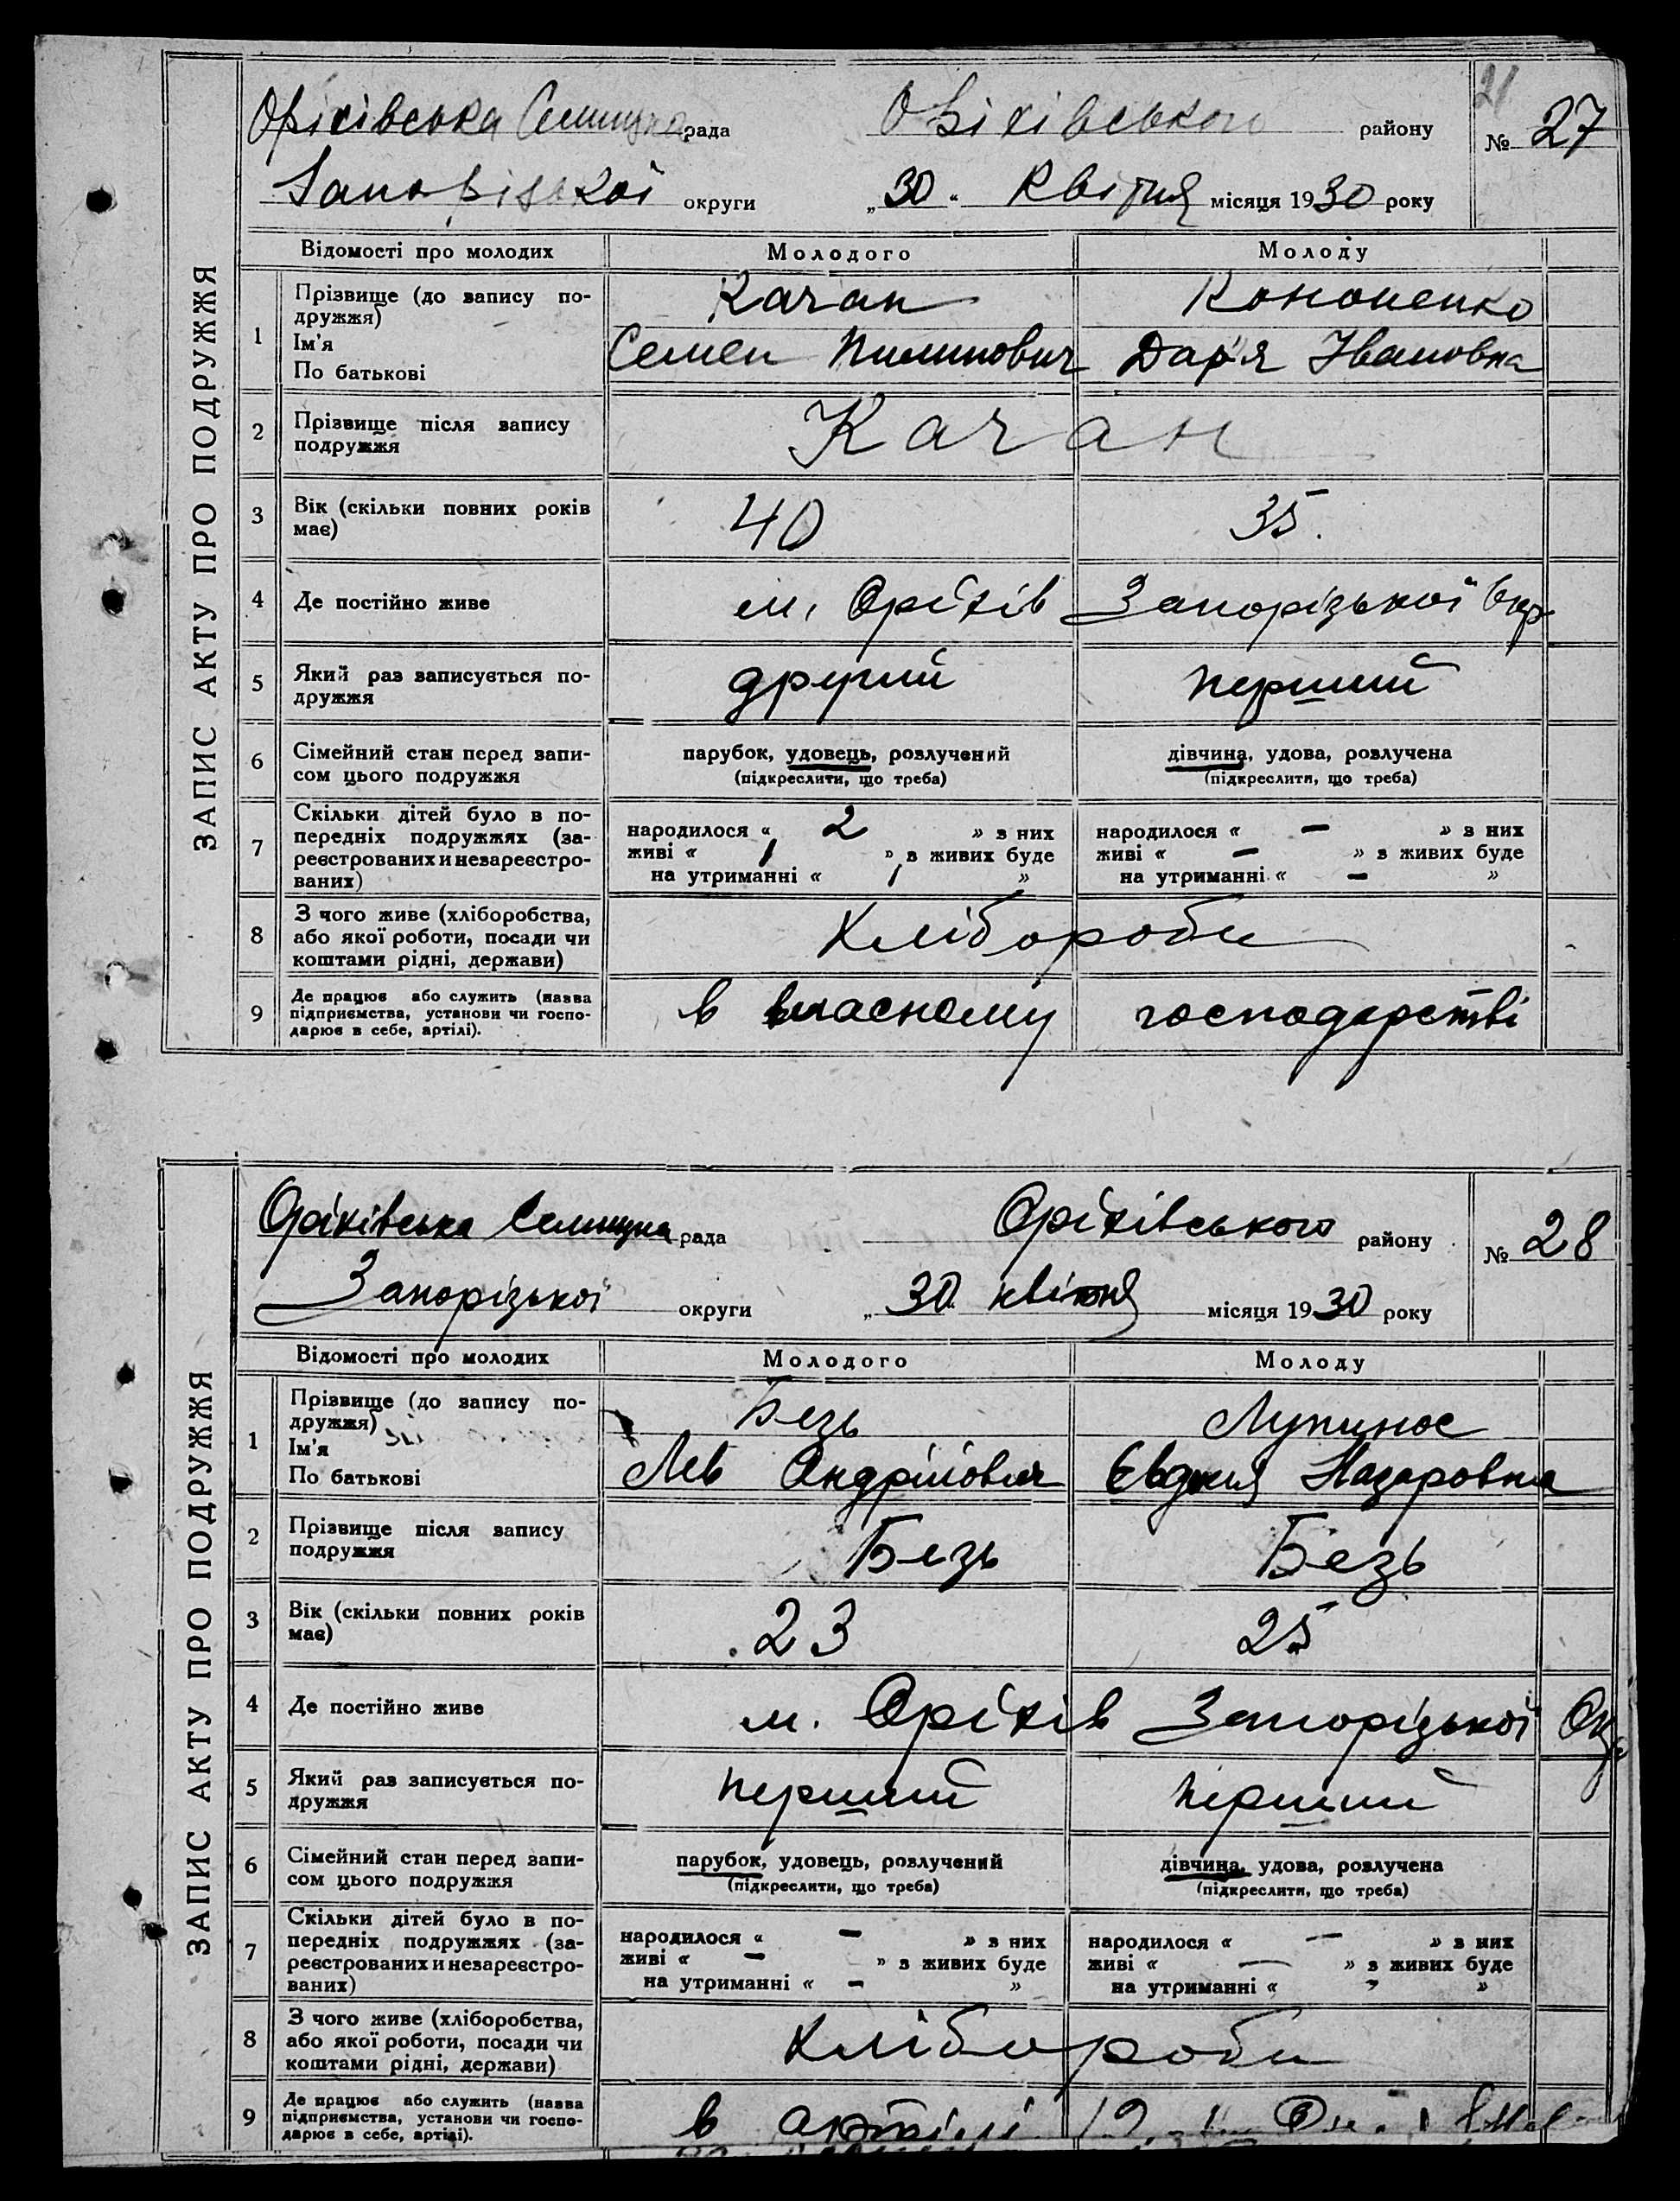 21
Оріхівська Селищна рада Оріхівського району № 27
Запорізької округи „30“ Квітня місяця 1930 року
ЗАПИС АКТУ ПРО ПОДРУЖЖЯ
Відомості про молодих Молодого Молоду
1 Прізвище (до запису по-
дружжя) Качан Кононенко
Ім'я Семен Пилипович Дар'я Івановна
По батькові
2 Прізвище після запису
подружжя Качан
3 Вік (скільки повних років
має) 40 35.
4 Де постійно живе м. Оріхів Запорізької Окр
5 Який раз записується по-
дружжя другий перший
6 Сімейний стан перед запи-
сом цього подружжя
парубок, удовець, розлучений дівчина, удова, розлучена
(підкреслити, що треба) (підкреслити, що треба)
7 Скільки дітей було в по-
передніх подружжях (за-
реєстрованих и незареєстро-
ваних)
народилося « 2 » з них народилося « – » з них
живі « 1 » з живих буде живі « – » з живих буде
на утриманні « 1 » на утриманні « – »
8 З чого живе (хліборобства,
або якої роботи, посади чи
коштами рідні, держави) Хлібороби
9 Де працює або служить (назва
підприємства, установи чи госпо-
дарює в себе, артілі). в власному господарстві
Оріхівська Селищна рада Оріхівського району № 28
Запорізької округи „30 квітня місяця 1930 року
ЗАПИС АКТУ ПРО ПОДРУЖЖЯ
Відомості про молодих Молодого Молоду
1 Прізвище (до запису по-
дружжя) Безь Лупинос
Ім'я Лев Андрійович Євдокия Назаровна
По батькові
2 Прізвище після запису
подружжя Безь Безь
3 Вік (скільки повних років
має) 23 25
4 Де постійно живе м. Оріхів Запорізької Окр
5 Який раз записується по-
дружжя перший перший
6 Сімейний стан перед запи-
сом цього подружжя
парубок, удовець, розлучений дівчина, удова, розлучена
(підкреслити, що треба) (підкреслити, що треба)
7 Скільки дітей було в по-
передніх подружжях (за-
реєстрованих и незареєстро-
ваних)
народилося « – » з них народилося « – » з них
живі « – » з живих буде живі « – » з живих буде
на утриманні « – » на утриманні « »
8 З чого живе (хліборобства,
або якої роботи, посади чи
коштами рідні, держави) Хлібороби
9 Де працює або служить (назва
підприємства, установи чи госпо-
дарює в себе, артілі). в артілі